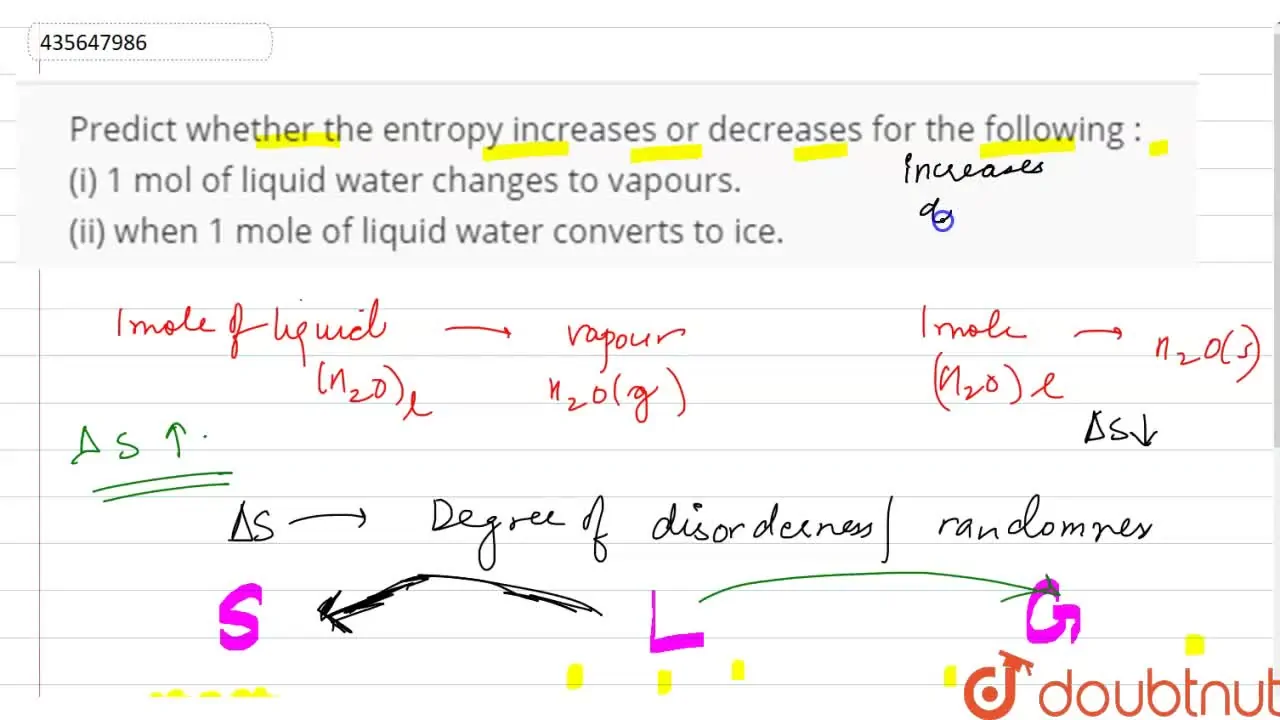 435647986
Predict whether the entropy increases or decreases for the following :
(i) 1 mol of liquid water changes to vapours.
Increases
(ii) when 1 mole of liquid water converts to ice.
d
1 mole of liquid → vapour
(H2O)l H2O(g)
1 mole → H2O(s)
(H2O) l
ΔS ↑
ΔS↓
ΔS → Degree of disorderness/ randomness
S L G
doubtnut